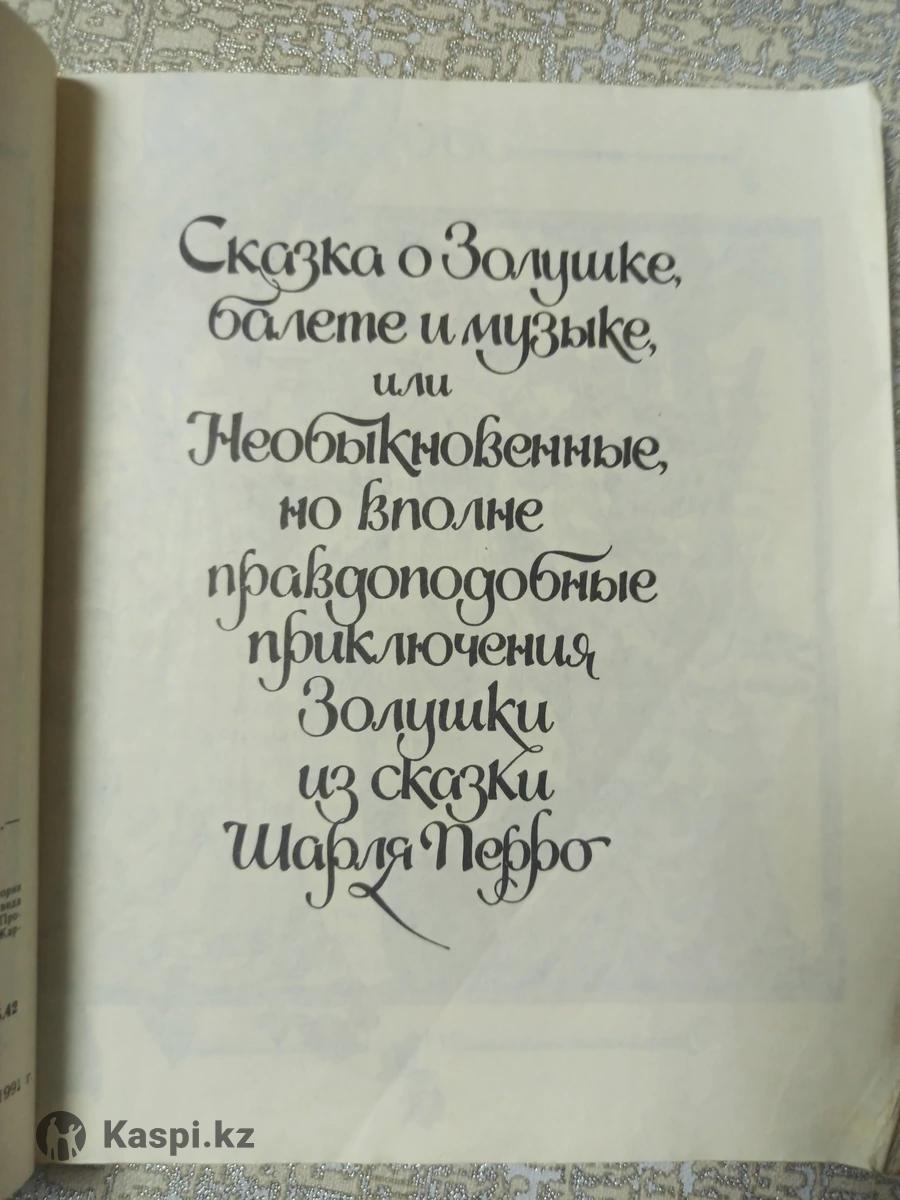 Сказка о Золушке,
балете и музыке,
или
Необыкновенные,
но вполне
правдоподобные
приключения
Золушки
из сказки
Шарля Перро
.—
вида
Про-
Кар-
.42
1991 г
Kaspi.kz